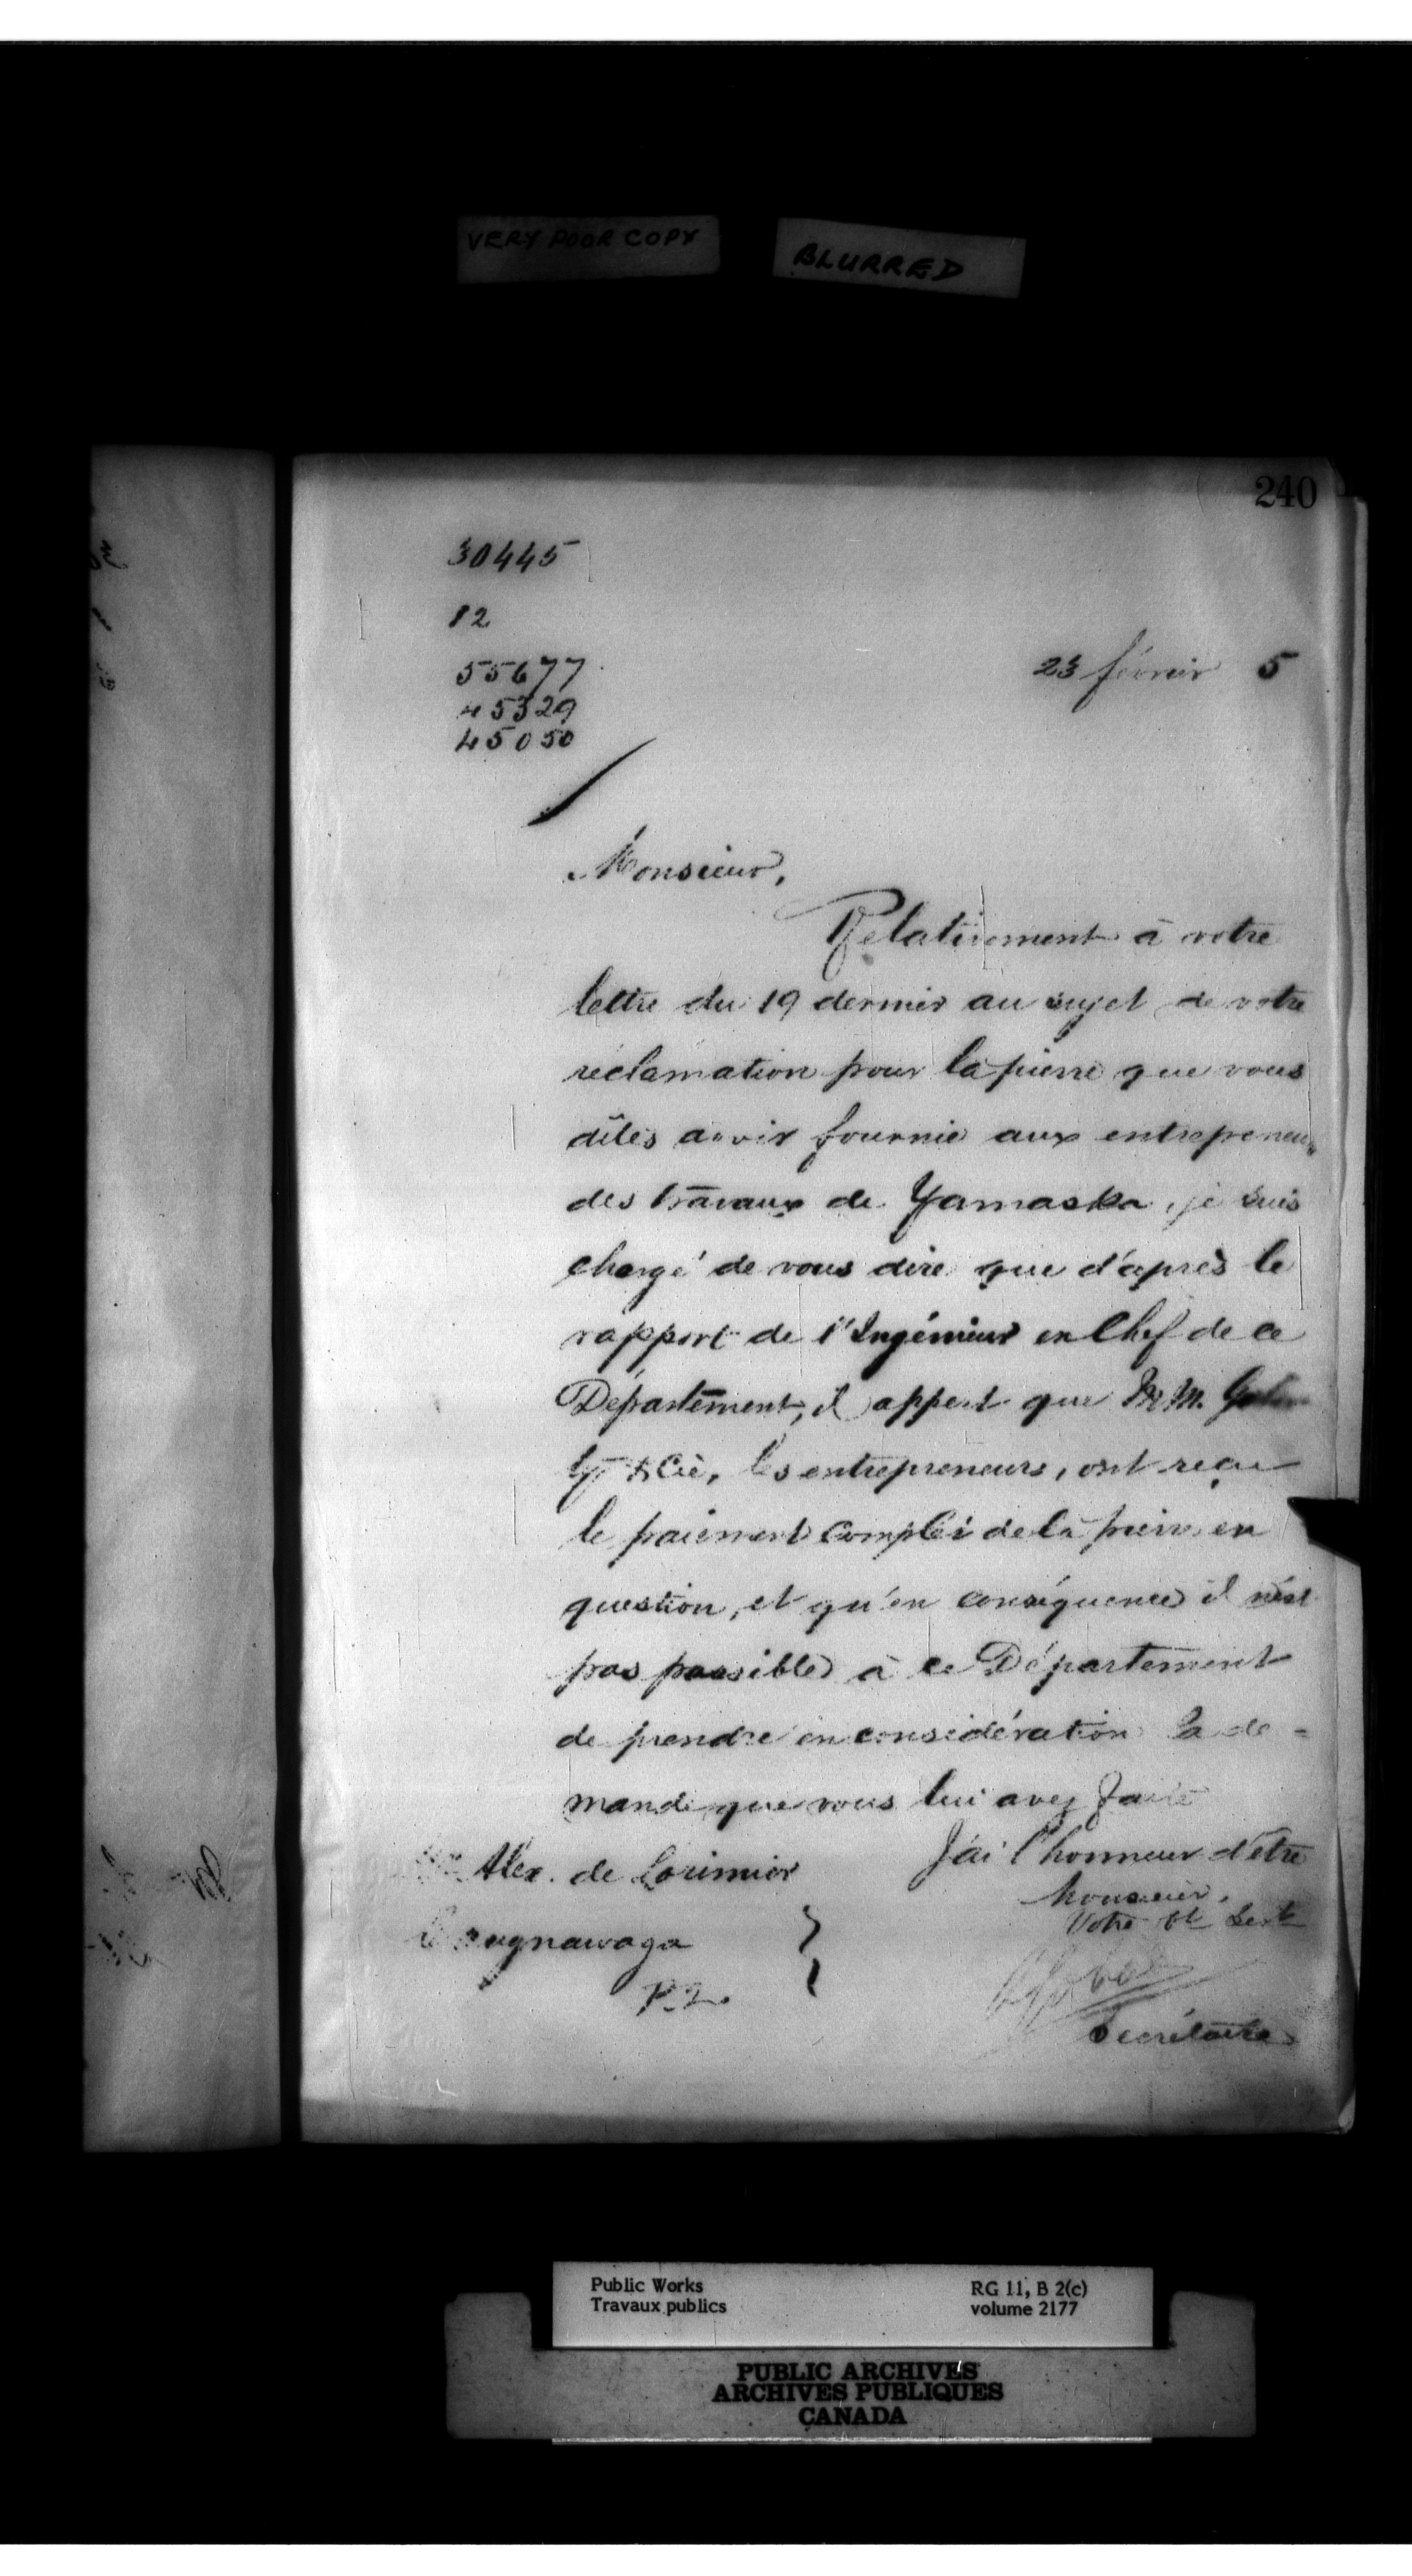 VERY POOR COPY
BLURRED
240
30445
12
55677
45329
45050
23 février 5
Monsieur,
Relativement à votre
lettre du 19 dernier au sujet de votre
réclamation pour la pierre que vous
dîtes avoir fournie aux entrepreneurs
des travaux de Yamaska, je suis
chargé de vous dire que d'après le
rapport de l'Ingénieur en Chef de ce
Département, il appert que M.M.
& Cie, les entrepreneurs, ont reçu
le paiement complet de la pierre en
question, et qu'en conséquence il n'est
pas possible à ce Département
de prendre en considération la de=
mande que vous lui avez faite
J'ai l'honneur d'être
Monsieur,
Votre ob Sert
Secrétaire
Alex. de Lorimier
Caugnawaga
P.Q.
Public Works
Travaux publics
RG 11, B 2(c)
volume 2177
PUBLIC ARCHIVES
ARCHIVES PUBLIQUES
CANADA